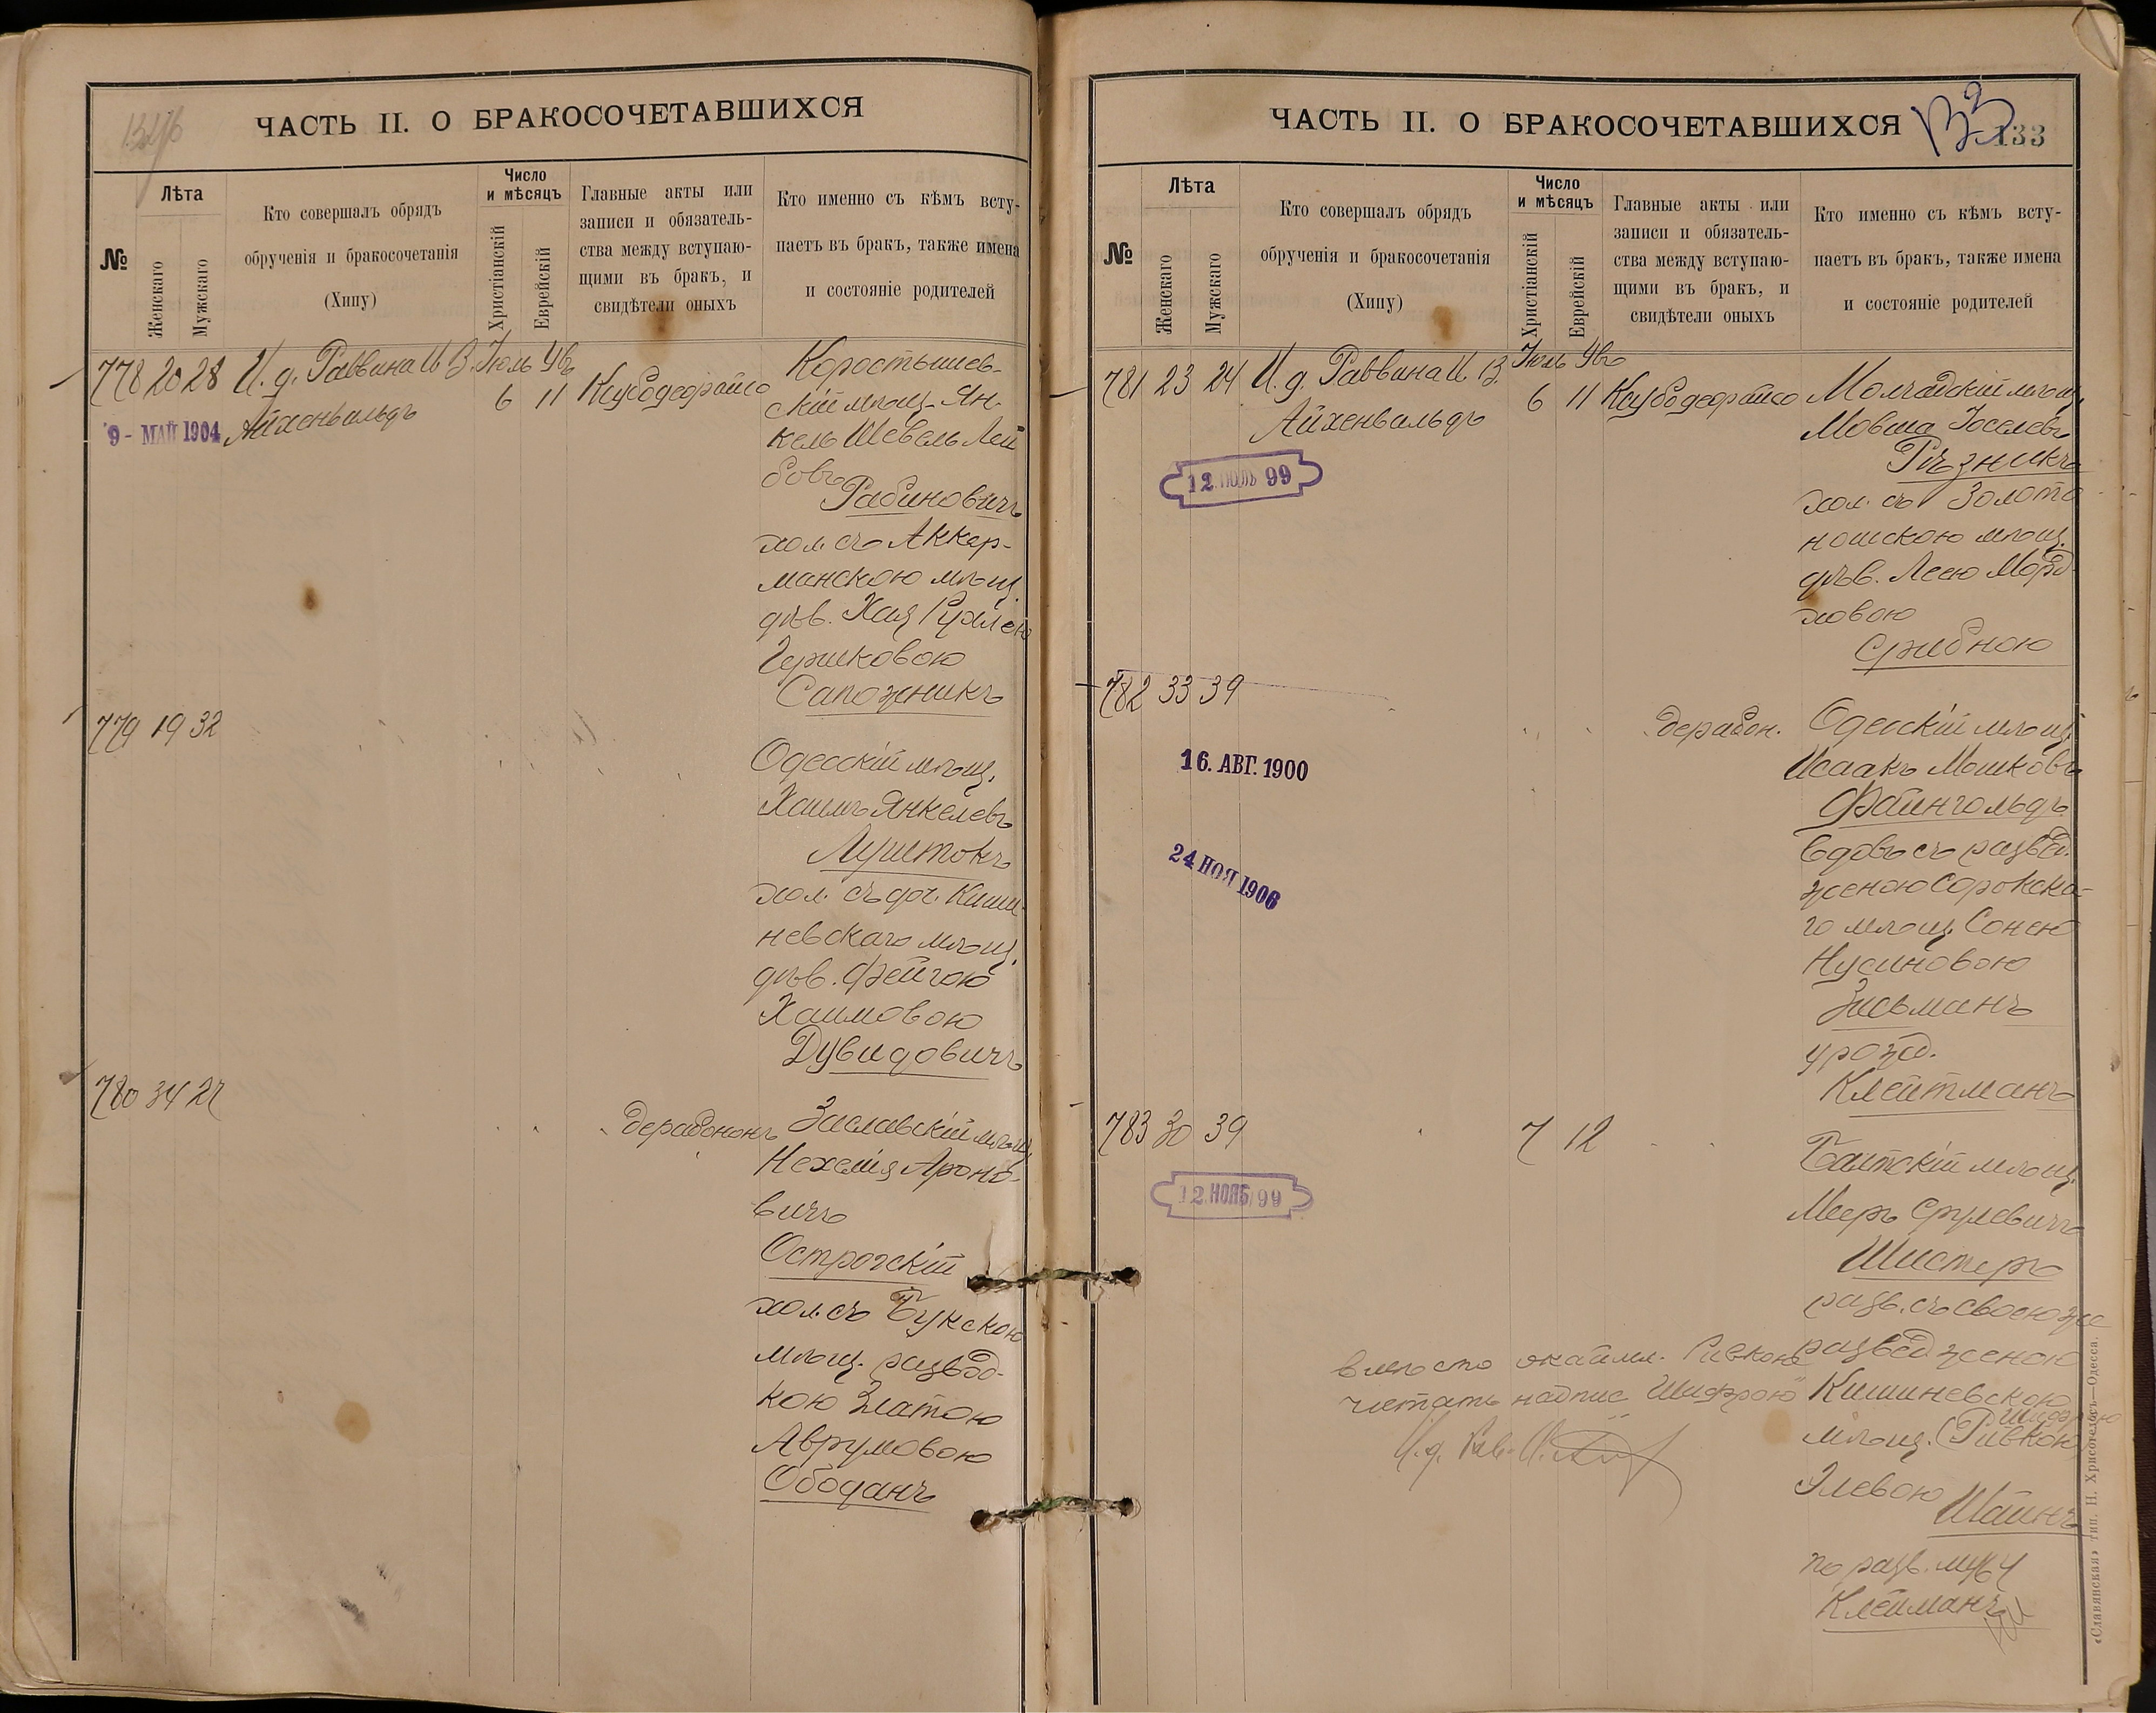 ЧАСТЬ II. О БРАКОСОЧЕТАВШИХСЯ
№
Лѣта
Женскаго
Мужскаго
Кто совершалъ обрядъ
обрученія и бракосочетанія
(Хипу)
Число
и мѣсяцъ
Христіанскій
Еврейскій
Главные акты или
записи и обязатель-
ства между вступаю-
щими въ бракъ, и
свидѣтели оныхъ
Кто именно съ кѣмъ всту-
паетъ въ бракъ, также имена
и состояніе родителей
778 20 28 И. д. Раввина И В. Іюль Ав
Айхенвальдъ
6 11
9 - МАЙ 1904
Коростышев-
скій мѣщ. Ян-
кель Шевель Лей
бовъ
Рабиновичъ
хол. съ Аккер-
манскою мѣщ.
дѣв. Хая Рухлею
Гершковою
Сапожникъ
779 19 32
Одесскій мѣщ.
Хаимъ Янкелевъ
Лушстокъ
хол. съ доч. Киши-
невскаго мѣщ.
дѣв. Фейгою
Хаимовою
Дувидовичъ
780 34 27
дерабононъ
Заславскій мѣщ.
Нехемія Ароно-
вичъ
Острогскій
хол. съ Букскою
мѣщ. развод-
кою Златою
Аврумовою
Ободанъ
ЧАСТЬ II. О БРАКОСОЧЕТАВШИХСЯ
133
133
№
Лѣта
Женскаго
Мужскаго
Кто совершалъ обрядъ
обрученія и бракосочетанія
(Хипу)
Число
и мѣсяцъ
Христіанскій
Еврейскій
Главные акты или
записи и обязатель-
ства между вступаю-
щими въ бракъ, и
свидѣтели оныхъ
Кто именно съ кѣмъ всту-
паетъ въ бракъ, также имена
и состояніе родителей
781 23 24 И. д. Раввина И. В. Іюль Ав
Айхенвальдъ
6 11
12 ІЮЛЬ 99
Молчадскій мѣщ.
Мовша Іоселевъ
Рѣзникъ
хол. съ Золото
ношскою мѣщ.
дѣв. Леею Морд-
ховою
Срибною
782 33 39
16. АВГ. 1900
24 НОЯ 1906
дерабон.
Одесскій мѣщ.
Исаакъ Мошковъ
Файнгольдъ
вдовъ съ развед.
женою Сорокска-
го мѣщ. Сонею
Нусиновою
Зисьманъ
урожд.
Клейтманъ
783 30 39
7 12
12 НОЯБ 99
Балтскій мѣщ.
Мееръ Срулевичъ
Шистеръ
разв. съ своею же
развед женою
Кишиневскою
Шифрою
мѣщ. (Ривкою)
Элевою
Штаинъ
по разв. мужу
Клейманъ
вмѣсто окайм. Ривкою
читать надпис "Шифрою"
И. д. Рав.
«Славянская» тип. Н. Хрисогелосъ—Одесса.